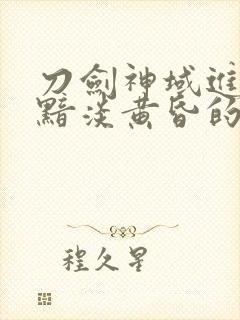 刀劍神域進
黯淡黃昏的
程久星